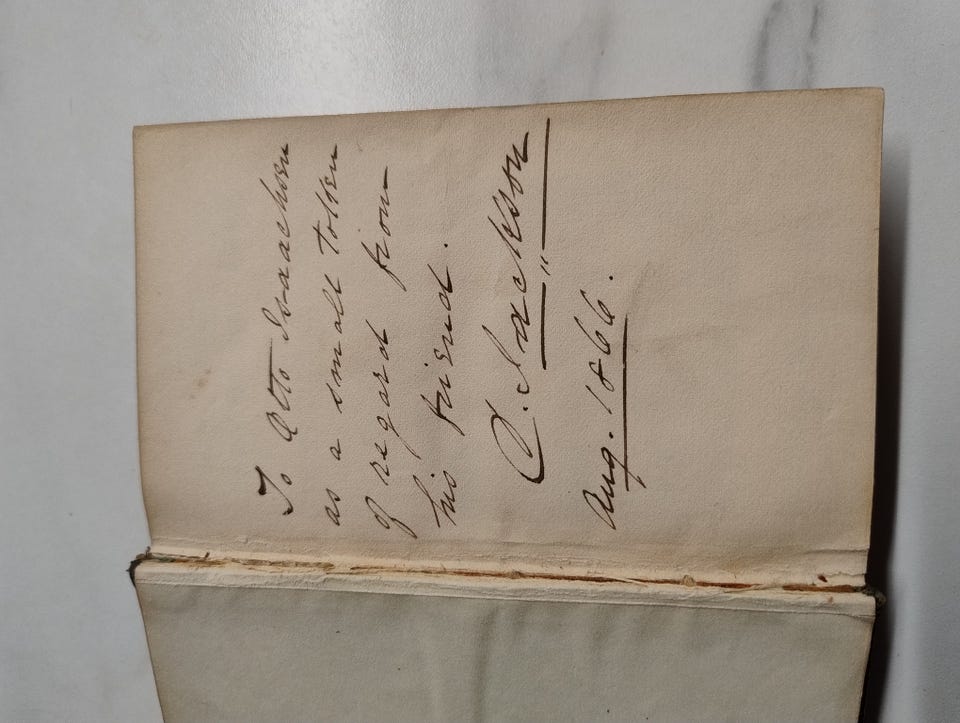 To Otto Isaachsen
as a small token
of regard from
his friend.
C. Jackson
Aug. 1866.